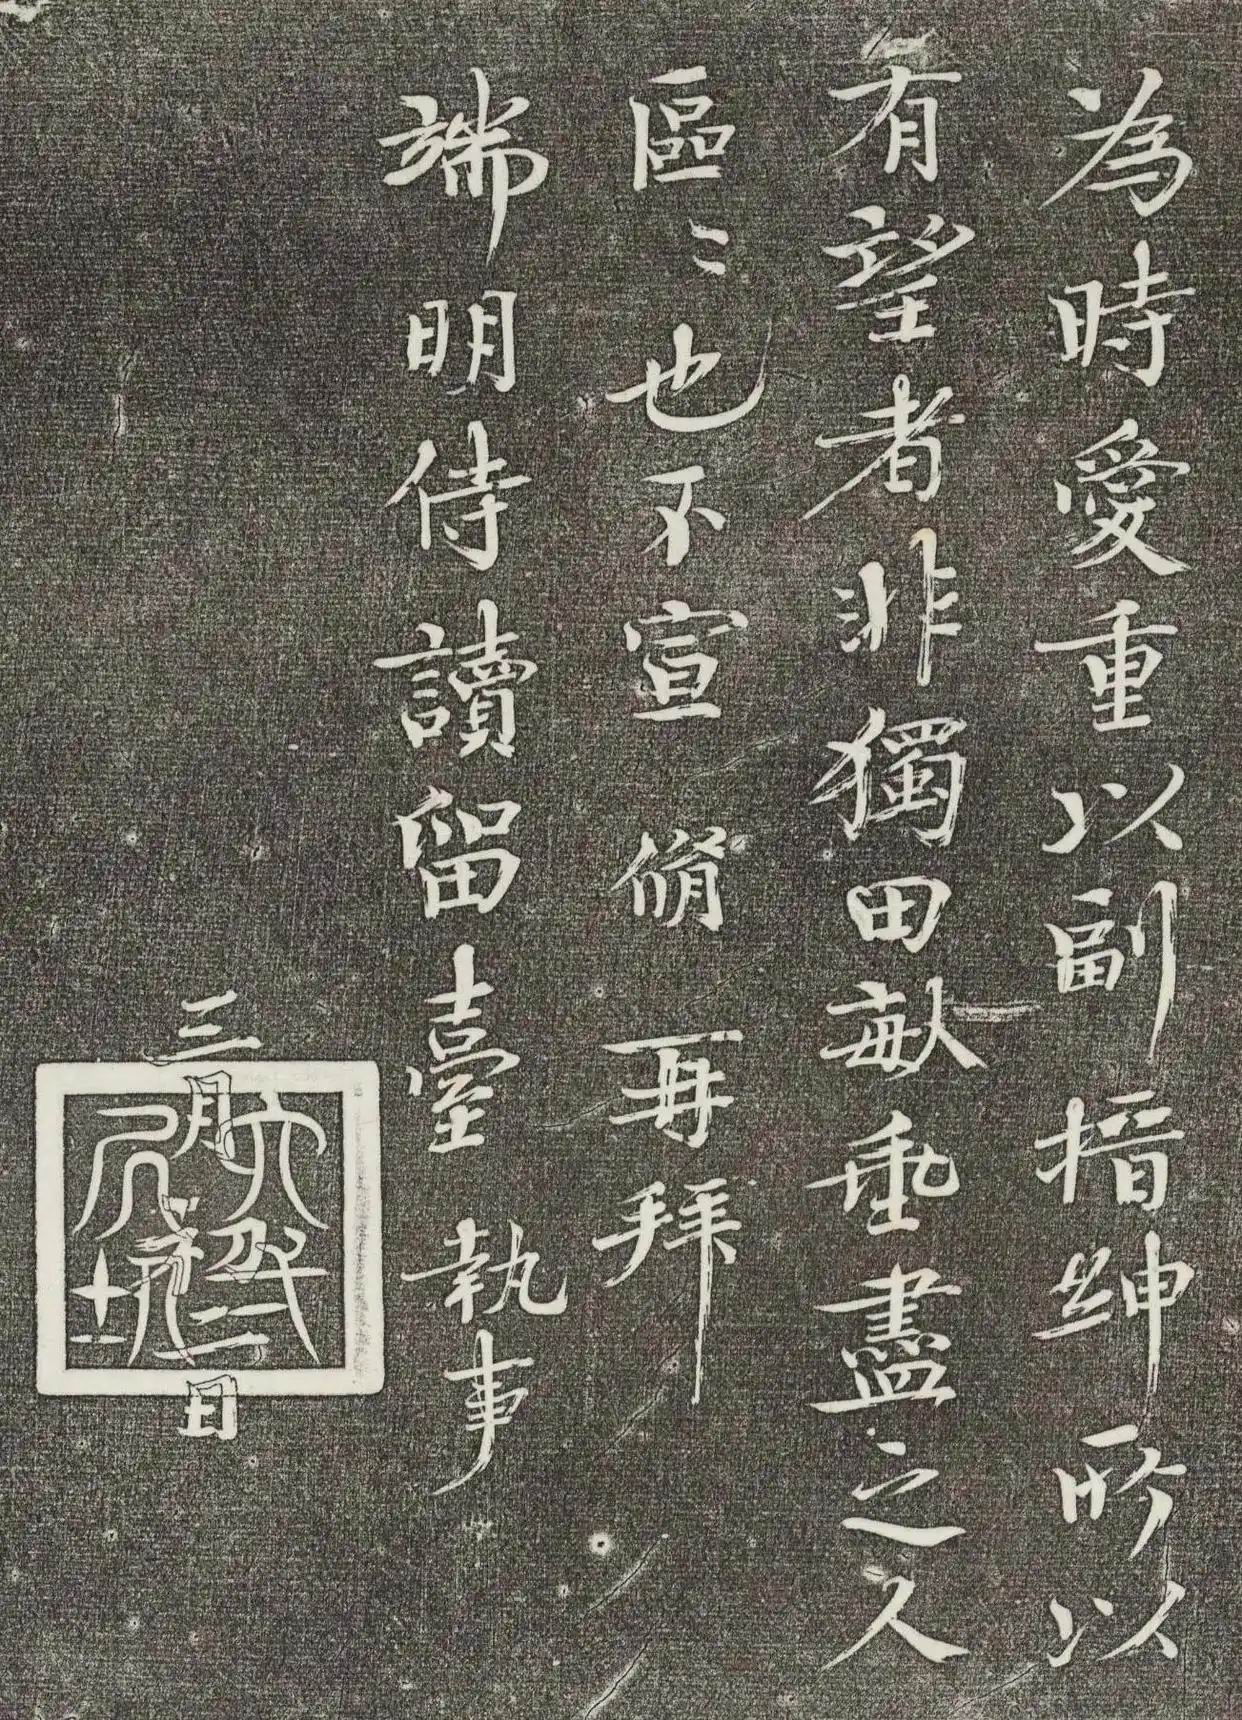 為時愛重以副搢紳所以
有望者非獨田畝垂盡之人
區〻也不宣脩再拜
端明侍讀留臺執事
三月初二日